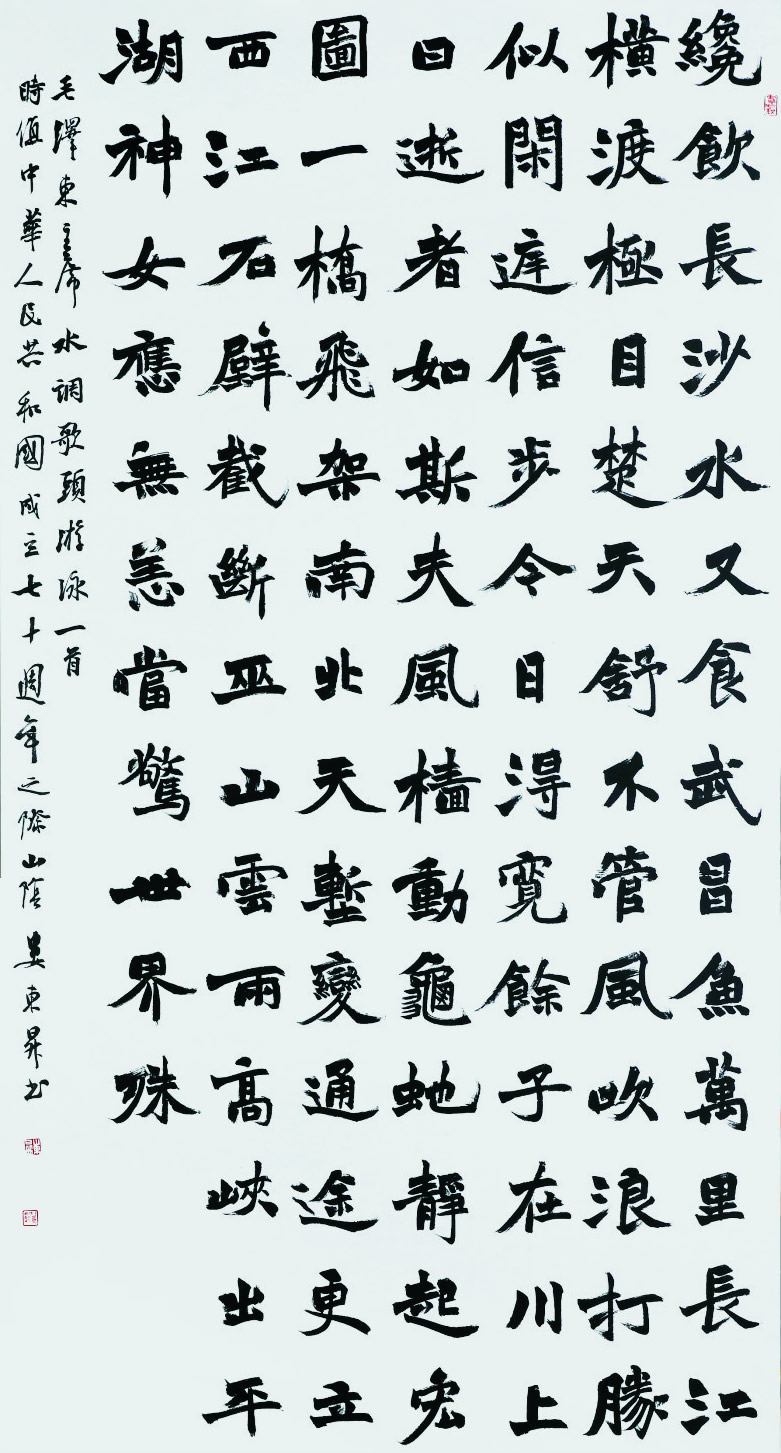 纔飲長沙水又食武昌魚萬里長江
橫渡極目楚天舒不管風吹浪打勝
似閑庭信步今日得寬餘子在川上
曰逝者如斯夫風檣動龜蛇靜起宏
圖一橋飛架南北天塹變通途更立
西江石壁截斷巫山雲雨高峽出平
湖神女應無恙噹驚世界殊
毛澤東主席水調歌頭游泳一首
時值中華人民共和國成立七十週年之際山陰婁東昇书